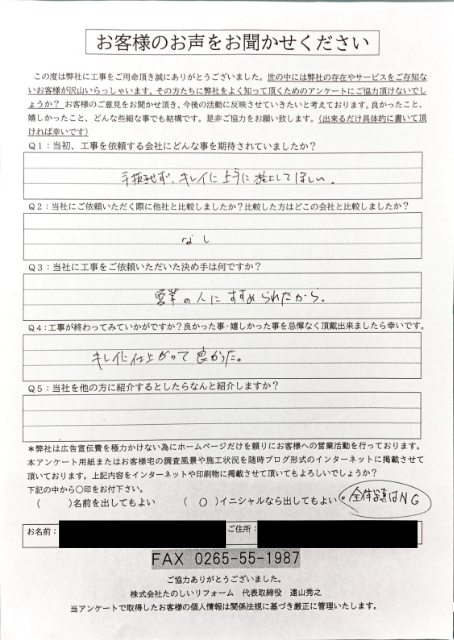 お客様のお声をお聞かせください
この度は弊社に工事をご用命頂き誠にありがとうございました。世の中には弊社の存在やサービスをご存知な
いお客様が沢山いらっしゃいます。その方たちに弊社をよく知って頂くためのアンケートにご協力頂けないでし
ょうか? お客様のご意見をお聞かせ頂き、今後の活動に反映させていきたいと考えております。良かったこと、
嬉しかったこと、どんな些細な事でも結構です。是非ご協力をお願い致します。(出来るだけ具体的に書いて頂
ければ幸いです)
Q1:当初、工事を依頼する会社にどんな事を期待されていましたか?
手抜きせず、キレイに 施工してほしい。
Q2:当社にご依頼いただく際に他社と比較しましたか?比較した方はどこの会社と比較しましたか?
なし
Q3:当社に工事をご依頼いただいた決め手は何ですか?
営業の人にすすめられたから。
Q4:工事が終わってみていかがですか?良かった事・嬉しかった事を忌憚なく頂戴出来ましたら幸いです。
キレイに仕上がって良かった。
Q5:当社を他の方に紹介するとしたらなんと紹介しますか?
*弊社は広告宣伝費を極力かけない為にホームページだけを頼りにお客様への営業活動を行っております。
本アンケート用紙またはお客様宅の調査風景や施工状況を随時ブログ形式のインターネットに掲載させて
頂いております。上記内容をインターネットや印刷物に掲載させて頂いてもよろしいでしょうか?
下記の中から〇印をお付下さい。
( )名前を出してもよい ( O )イニシャルなら出してもよい 。全体写真はNG
お名前: ご住所:
FAX 0265-55-1987
ご協力ありがとうございました。
株式会社たのしいリフォーム 代表取締役 遠山秀之
当アンケートで取得したお客様の個人情報は関係法規に基づき厳正に管理いたします。